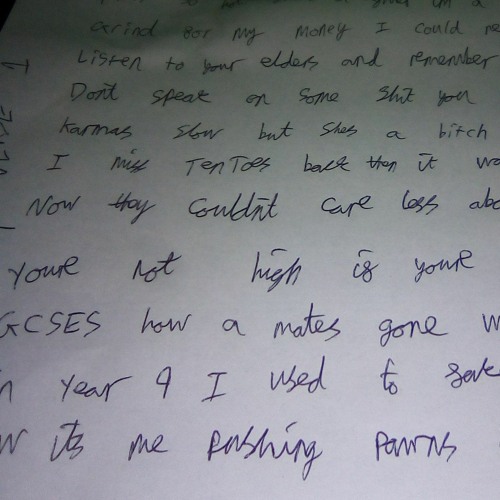 Grind for my money I could
Listen to your elders and remember
Dont speak on some shit you
Karmas slow but shes a bitch
I miss TenToes back then it
Now they couldn't care less
youre not high is youre
GCSES how a mates gone
Year 9 I used to
its me pushing pawns